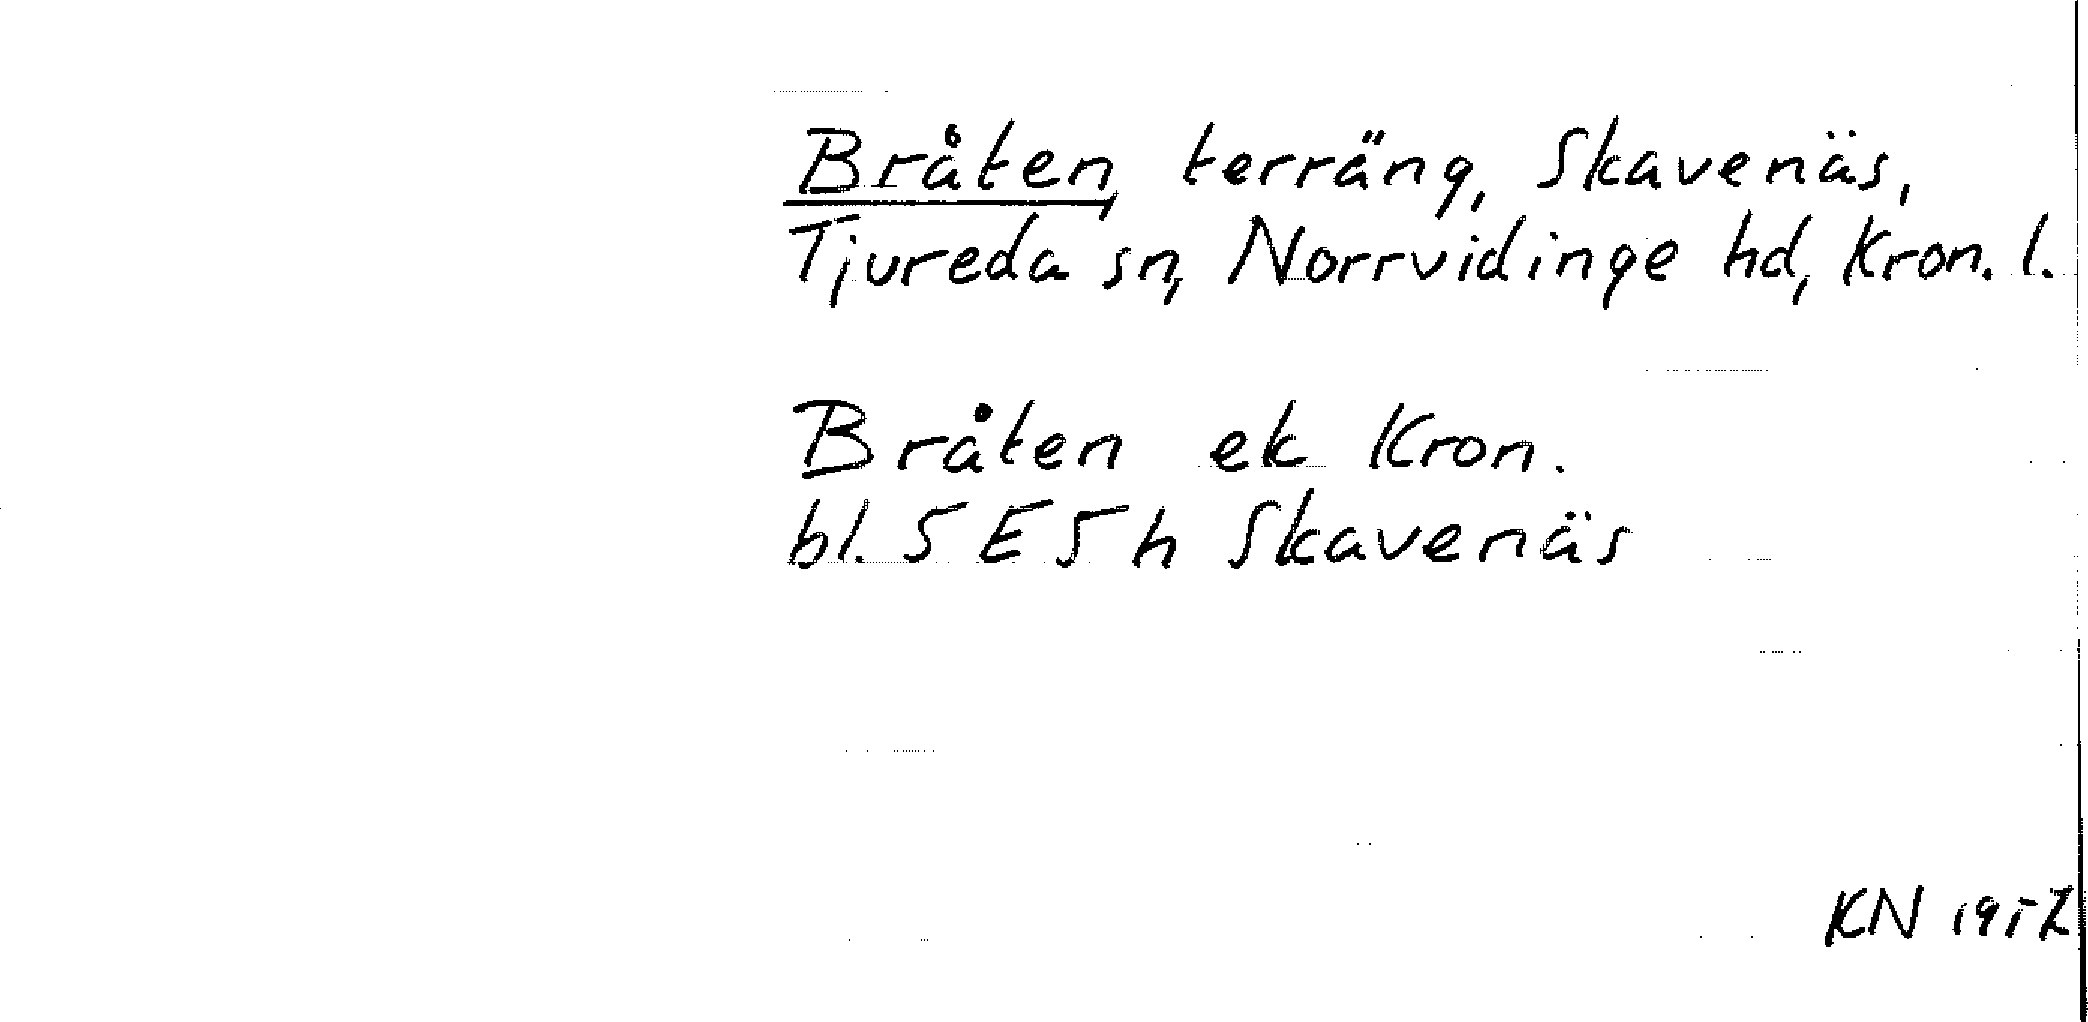 Bråten, terräng, Skavenäs,
Tjureda sn, Norrvidinge hd, Kron. l.
Bråten ek Kron.
bl. 5 E 5 h Skavenäs
KN